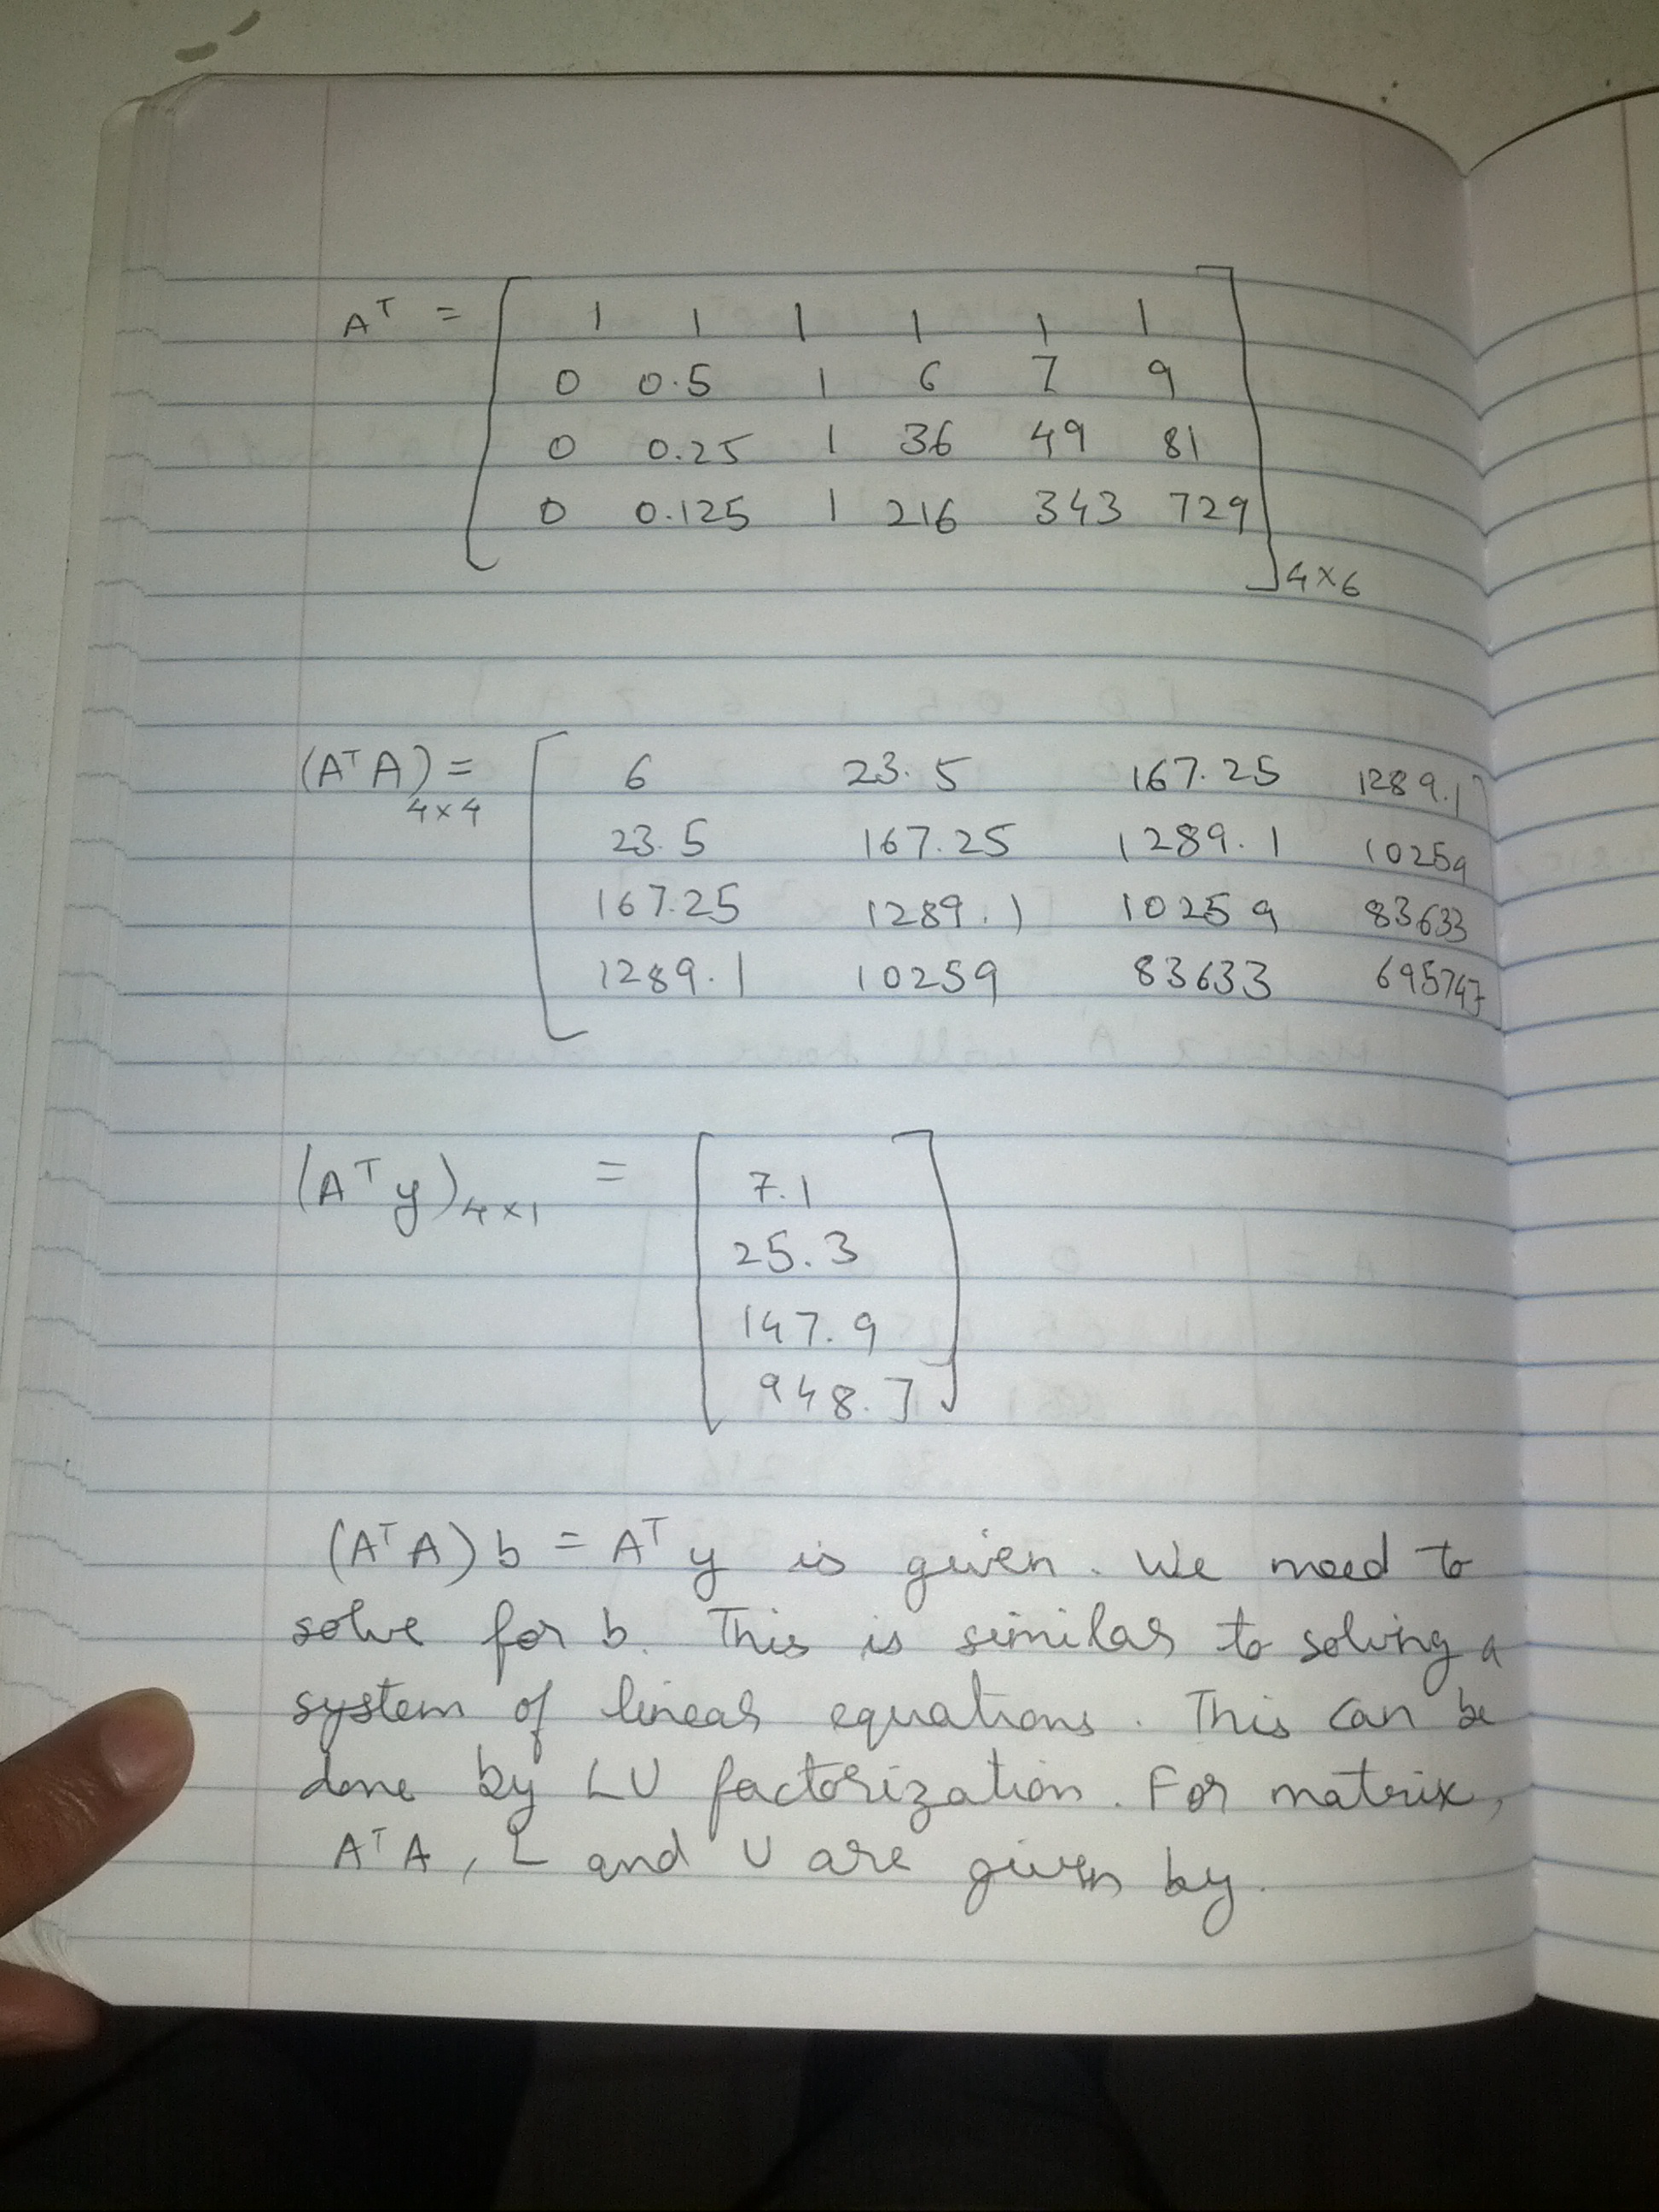 Aᵀ =
1 1 1 1 1 1
0 0.5 1 6 7 9
0 0.25 1 36 49 81
0 0.125 1 216 343 729
4×6
(AᵀA)4×4 =
6 23.5 167.25 1289.1
23.5 167.25 1289.1 10259
167.25 1289.1 10259 83633
1289.1 10259 83633 695747
(Aᵀy)4×1 =
7.1
25.3
147.9
948.7
(AᵀA) b = Aᵀ y is given. We need to
solve for b. This is similar to solving a
system of linear equations. This can be
done by LU factorization. For matrix,
AᵀA, L and U are given by.